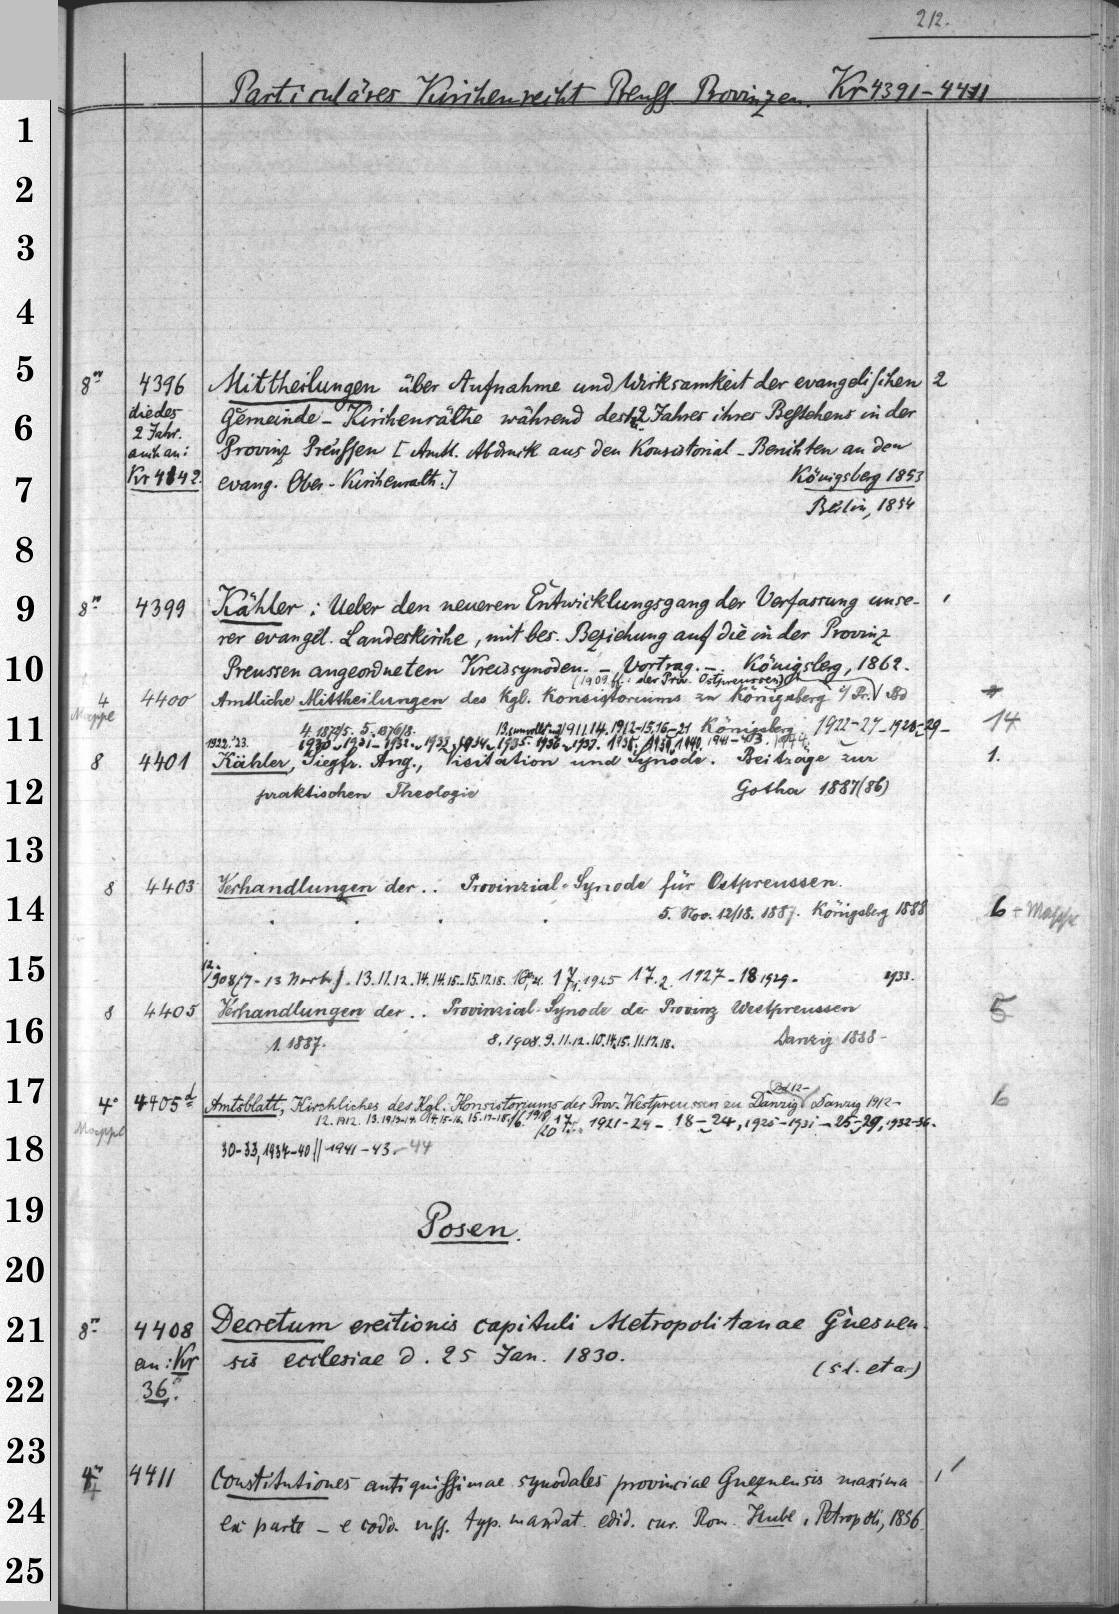 212.
Particuläres Kirchenrecht Preuss. Provinzen. Kr 4391-4411
8° 4396 Mittheilungen über Aufnahme und Wirksamkeit der evangelischen 2
die des Gemeinde-Kirchenräthe während des 1/2 Jahres ihres Bestehens in der
2 Jahr. auch an: Provinz Preussen [Amtl. Abdruck aus den Konsistorial-Berichten an den
Kr 4842. evang. Ober-Kirchenrath.] Königsberg 1853
Berlin, 1854
8° 4399 Kähler: Ueber den neueren Entwicklungsgang der Verfassung unse-
rer evangel. Landeskirche, mit bes. Beziehung auf die in der Provinz
Preussen angeordneten Kreissynoden. - Vortrag. - Königsberg, 1862.
(1909 ff.: der Prov. Ostpreussen)
4 Mappe 4400 Amtliche Mittheilungen des Kgl. Konsistoriums zu Königsberg i/Pr. Bd
4. 1874/5. 5. 1876/8. 1911.14. 1912-15.16-21 Königsberg 1922-27-1928-29- 14
1922.'23. 1930-1931-1932-1933, 1934, 1935-1936-1937. 1938, 1939, 1940, 1941-43. 1944
8 4401 Kähler, Siegfr. Aug., Visitation und Synode. Beiträge zur 1.
praktischen Theologie Gotha 1887(86)
8 4403 Verhandlungen der .. Provinzial-Synode für Ostpreussen.
5. Nov. 12/18. 1887. Königsberg 1888 6 + Mappe
12. 1908(7-13 Novbr). 13.11.12.14.14.15-15.17.18. 17. 1925 17.2. 1927-18 1929- 1933.
8 4405 Verhandlungen der .. Provinzial-Synode der Provinz Westpreussen 5
1. 1887. 8. 1908. 9.11.12.10.14.15.11.17.18. Danzig 1888-
Bd 12-
4° Mappe 4405d Amtsblatt, Kirchliches des Kgl. Konsistoriums der Prov. Westpreussen zu Danzig Danzig 1912- 6
12. 1912. 13. 1913-14. 14.15-16. 15.17-18. 16. 1919/20 17. 1921-24- 18-24, 1925-1931-25-29, 1932-34.
30-33, 1934-40 || 1941-43-44
Posen.
8° 4408 Decretum erectionis capituli Metropolitanae Gnesnen-
an: Kr 36. sis ecclesiae d. 25 Jan. 1830. (s l. et a.)
4° 4411 Constitutiones antiquissimae synodales provinciae Gneznensis maxima
ex parte - e codd. mss. typ. mandat. edid. cur. Rom. Hube, Petropoli, 1856